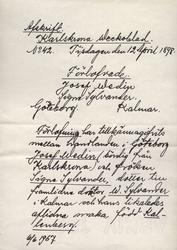 Afskrift.
Karlskrona Weckoblad.
N:o 42. Tisdagen den 12 April 1898.
Förlofvade.
Josef Wedin
Signe Sylvander.
Göteborg Kalmar.
Förlofning har tillkännagifvits
mellan handlanden i Göteborg
Josef Wedin (bördig från
Karlskrona) och fröken
Signe Sylvander, dotter till
framlidne doktor W. Sylvander
i Kalmar och hans likaledes
aflidna maka född Kal-
lenberg.
4/6 1967.